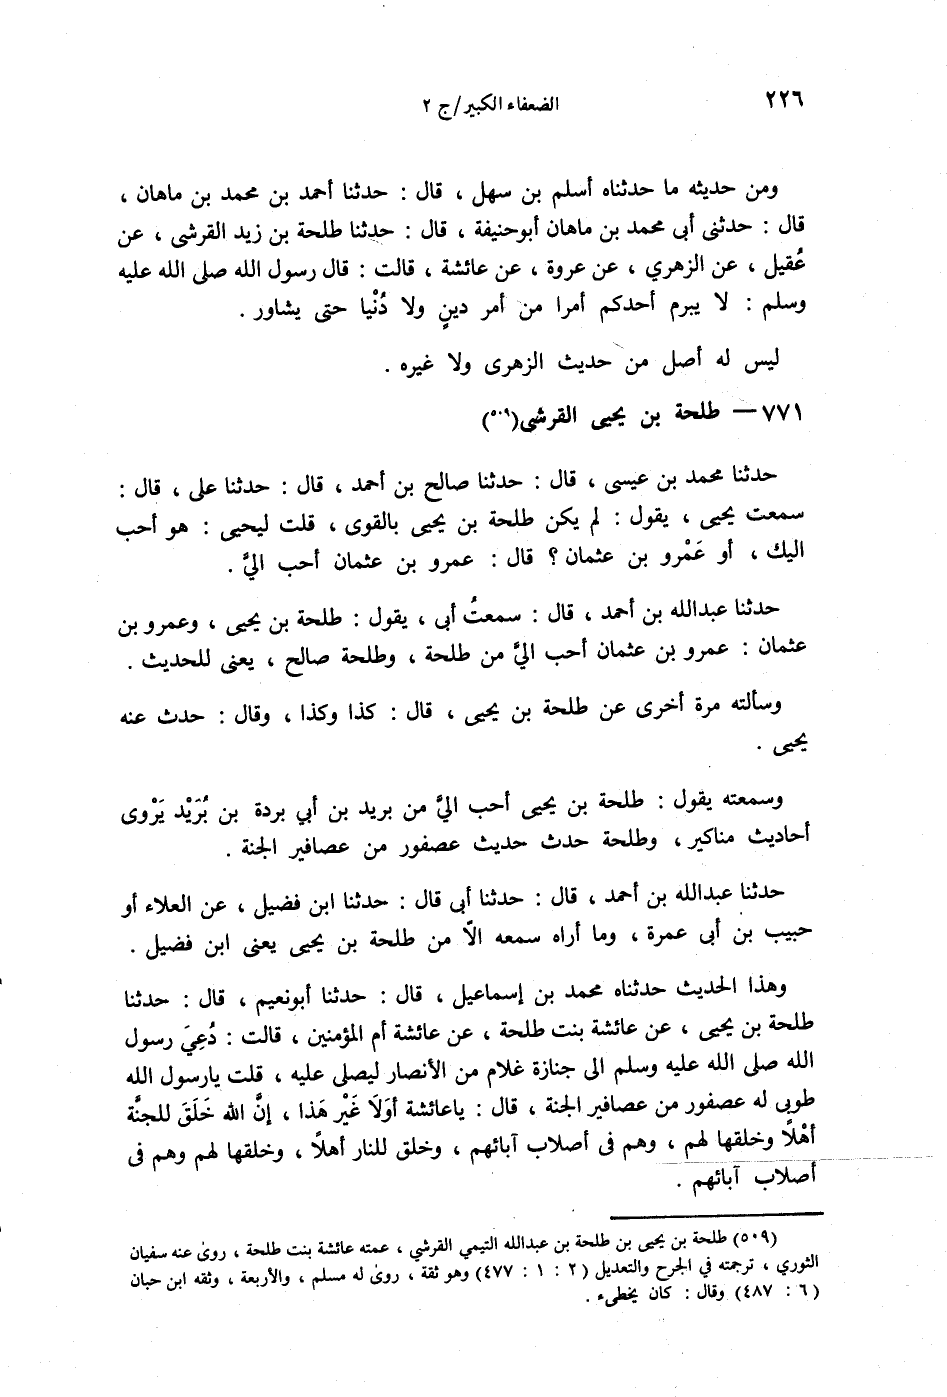 ٢٢٦ الضعفاء الكبير/ج ٢
ومن حديثه ما حدثناه أسلم بن سهل ، قال : حدثنا أحمد بن محمد بن ماهان ،
قال : حدثنى أبى محمد بن ماهان أبوحنيفة ، قال : حدثنا طلحة بن زيد القرشى ، عن
عُقيل ، عن الزهري ، عن عروة ، عن عائشة ، قالت : قال رسول الله صلى الله عليه
وسلم : لا يبرم أحدكم أمرا من أمر دينٍ ولا دُنْيا حتى يشاور .
ليس له أصل من حديث الزهرى ولا غيره .
٧٧١ — طلحة بن يحيى القرشى(٥٠٩)
حدثنا محمد بن عيسى ، قال : حدثنا صالح بن أحمد ، قال : حدثنا على ، قال :
سمعت يحيى ، يقول : لم يكن طلحة بن يحيى بالقوى ، قلت ليحيى : هو أحب
اليك ، أو عَمْرو بن عثمان ؟ قال : عمرو بن عثمان أحب اليَّ .
حدثنا عبدالله بن أحمد ، قال : سمعتُ أبى ، يقول : طلحة بن يحيى ، وعمرو بن
عثمان : عمرو بن عثمان أحب اليَّ من طلحة ، وطلحة صالح ، يعنى للحديث .
وسألته مرة أخرى عن طلحة بن يحيى ، قال : كذا وكذا ، وقال : حدث عنه
يحيى .
وسمعته يقول : طلحة بن يحيى أحب اليَّ من بريد بن أبي بردة بن بُرَيْد يَرْوى
أحاديث مناكير ، وطلحة حدث حديث عصفور من عصافير الجنة .
حدثنا عبدالله بن أحمد ، قال : حدثنا أبى قال : حدثنا ابن فضيل ، عن العلاء أو
حبيب بن أبى عمرة ، وما أراه سمعه الاّ من طلحة بن يحيى يعنى ابن فضيل .
وهذا الحديث حدثناه محمد بن إسماعيل ، قال : حدثنا أبونعيم ، قال : حدثنا
طلحة بن يحيى ، عن عائشة بنت طلحة ، عن عائشة أم المؤمنين ، قالت : دُعِيَ رسول
الله صلى الله عليه وسلم الى جنازة غلام من الأنصار ليصلى عليه ، قلت يارسول الله
طوبى له عصفور من عصافير الجنة ، قال : ياعائشة أوَلَا غَيْر هَذا ، إنَّ الله خَلَقَ للجنَّة
أهْلاً وخلقها لهم ، وهم فى أصلاب آبائهم ، وخلق للنار أهلاً ، وخلقها لهم وهم فى
أصلاب آبائهم .
(٥٠٩) طلحة بن يحيى بن طلحة بن عبدالله التيمي القرشي ، عمته عائشة بنت طلحة ، روىٰ عنه سفيان
الثوري ، ترجمته في الجرح والتعديل (٢ : ١ : ٤٧٧) وهو ثقة ، روىٰ له مسلم ، والأربعة ، وثقه ابن حبان
(٦ : ٤٨٧) وقال : كان يخطىء .